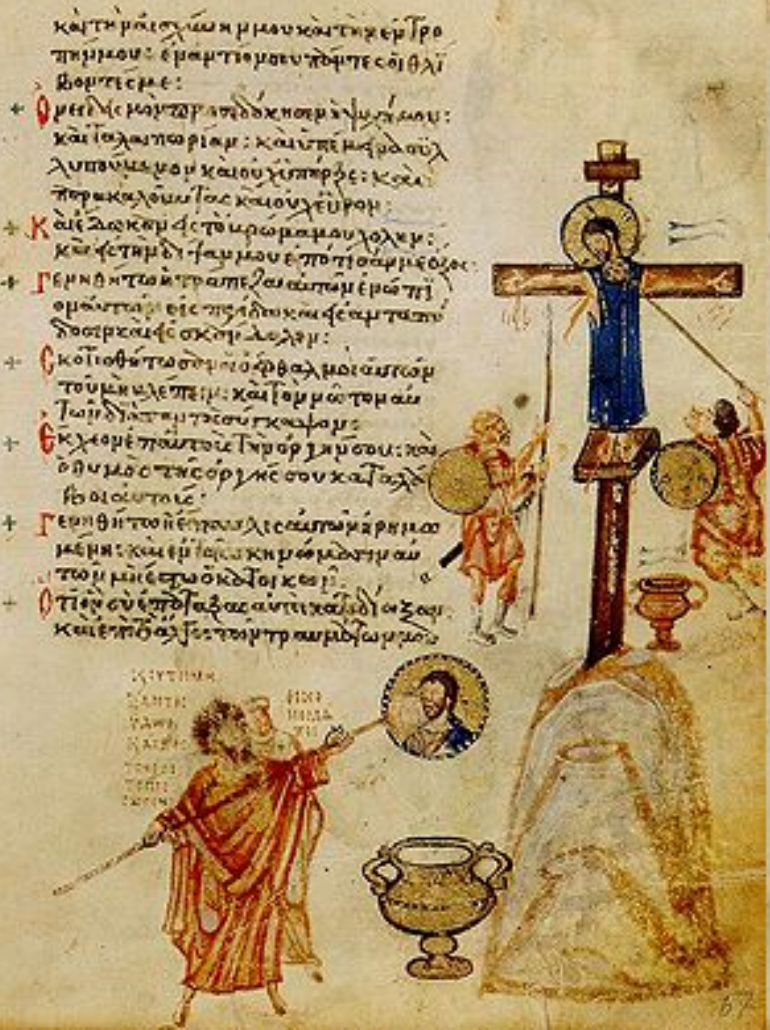 καὶ τὴν αἰσχύνην μου καὶ τὴν ἐντρο
πήν μου: ἐναντίον σου πάντες οἱ θλί
βοντές με:
Ὀνειδισμὸν προσεδόκησεν ἡ ψυχή μου:
καὶ ταλαιπωρίαν: καὶ ὑπέμεινα συλ
λυπούμενον καὶ οὐχ ὑπῆρξε: καὶ
παρακαλοῦντας καὶ οὐχ εὗρον:
Καὶ ἔδωκαν εἰς τὸ βρῶμα μου χολήν:
καὶ εἰς τὴν δίψαν μου ἐπότισάν με ὄξος:
Γενηθήτω ἡ τράπεζα αὐτῶν ἐνώπι
ον αὐτῶν εἰς παγίδα καὶ εἰς ἀνταπό
δοσιν καὶ εἰς σκάνδαλον:
Σκοτισθήτωσαν οἱ ὀφθαλμοὶ αὐτῶν
τοῦ μὴ βλέπειν: καὶ τὸν νῶτον αὐ
τῶν διὰ παντὸς σύγκαμψον:
Ἔκχεον ἐπ' αὐτοὺς τὴν ὀργήν σου: καὶ
ὁ θυμὸς τῆς ὀργῆς σου καταλά
βοι αὐτούς:
Γενηθήτω ἡ ἔπαυλις αὐτῶν ἠρημω
μένη: καὶ ἐν τοῖς σκηνώμασιν αὐ
τῶν μὴ ἔστω ὁ κατοικῶν:
Ὅτι ὃν σὺ ἐπάταξας αὐτοὶ κατεδίωξαν
καὶ ἐπὶ τὸ ἄλγος τῶν τραυμάτων μου
67